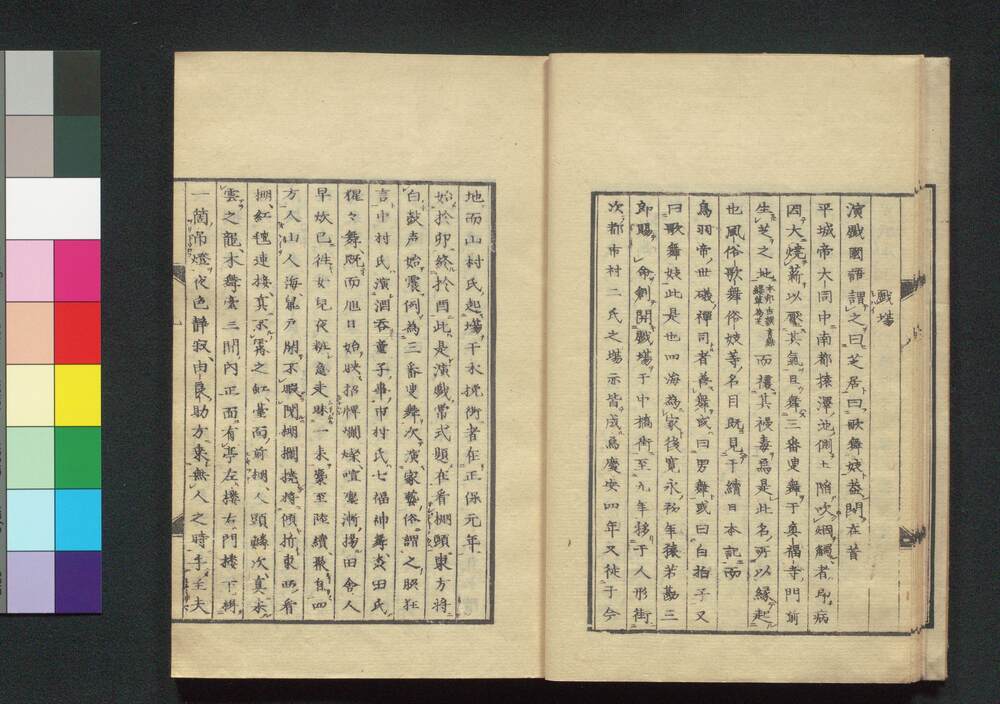 戯場
演戯國語謂之曰芝居曰歌舞妓蓋聞在昔
平城帝大同中南都猿澤池側土陷吹烟觸者即病
因大燒薪以壓其氣且舞三番叟舞于奥福寺門前
生芝之地 而禳其禍毒焉是此名所以縁起
也風俗歌舞俗妓等名目既見于續日本記而
鳥羽帝世礒禪司者善舞或曰男舞或曰白拍子又
曰歌舞妓此是也四海為家後寛永初年猿若勘三
郎賜命創開戯場于中橋街至九年移于人形街
次都市村二氏之場亦皆成焉慶安四年又徙于今
地而山村氏起場于木挽街者在正保元年
始於卯終於酉此是演戯常式題在看棚頭東方將
白鼓声始震例為三番叟舞次演家藝俗謂之脇狂
言中村氏演酒呑童子事市村氏七福神舞森田氏
猩々舞既而旭日始映招牌爛燦喧塵漸揚田舎人
早炊已徃女兒夜粧急走昧一未褰至陸續聚自四
方人山人海鼠戸開不暇閲棚欄撓將傾折東西看
棚紅氊連接真不霽之虹臺面前棚人頭轔次真未
雲之龍木舞臺三間内正面有亭左樓右門樓下
一箇吊燈夜色静寂由良助方乘無人之時手主夫